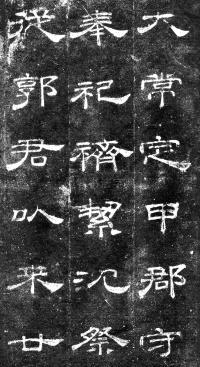 大常定甲郡守
奉祀絜沈祭
從郭君以來廿